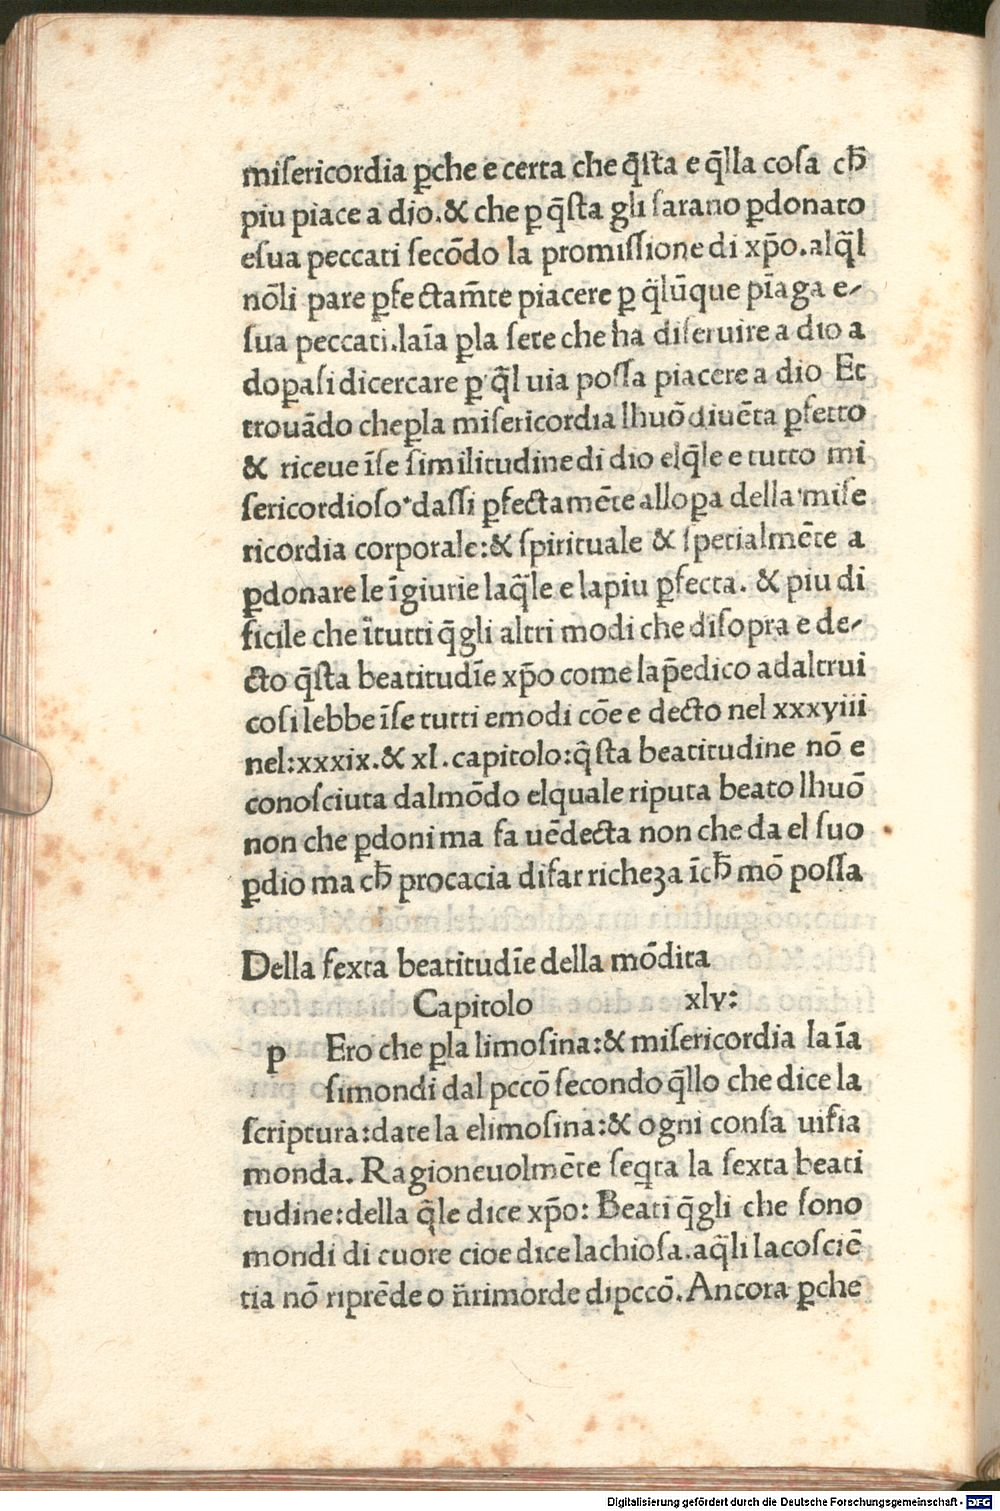 miſericordia ꝑche e certa che q̃ſta e q̃lla coſa cħ
piu piace a dio.& che ꝑ q̃ſta gli ſarano ꝑdonato
eſua peccati ſecõdo la promiſſione di xp̃o.alq̃l
nõli pare ꝑfectam̃te piacere ꝑ q̃lũque pĩaga e-
ſua peccati.laĩa ꝑla ſete che ha diſeruire a dio a
doꝑaſi dicercare ꝑ q̃l uia poſſa piacere a dio Et
trouãdo cheꝑla miſericordia lhuõ diuẽta ꝑfetto
& riceue ĩſe ſimilitudine di dio elq̃le e tutto mi
ſericordioſo·daſſi ꝑfectamẽte alloꝑa della miſe
ricordia corporale:& ſpirituale & ſpetialmẽte a
ꝑdonare le ĩgiurie laq̃le e lapiu ꝑfecta. & piu di
ficile che ĩtutti q̃gli altri modi che diſopra e de-
cto q̃ſta beatitudĩe xp̃o come lap̃edico adaltrui
coſi lebbe ĩſe tutti emodi cõe e decto nel xxxviii
nel:xxxix.& xl.capitolo:q̃ſta beatitudine nõ e
conoſciuta dalmõdo elquale riputa beato lhuõ
non che ꝑdoni ma fa uẽdecta non che da el ſuo
ꝑdio ma cħ procacia difar richeza ĩcħ mõ poſſa
Della ſexta beatitudĩe della mõdita
Capitolo xlv:
p Ero che ꝑla limoſina:& miſericordia la ĩa
ſimondi dal pccõ ſecondo q̃llo che dice la
ſcriptura:date la elimoſina:& ogni conſa uiſia
monda. Ragioneuolmẽte ſeq̃ta la ſexta beati
tudine:della q̃le dice xp̃o: Beati q̃gli che ſono
mondi di cuore cioe dice lachioſa.aq̃li lacoſciẽ
tia nõ riprẽde o ñrimorde dipccõ.Ancora ꝑche
Digitalisierung gefördert durch die Deutsche Forschungsgemeinschaft - DFG